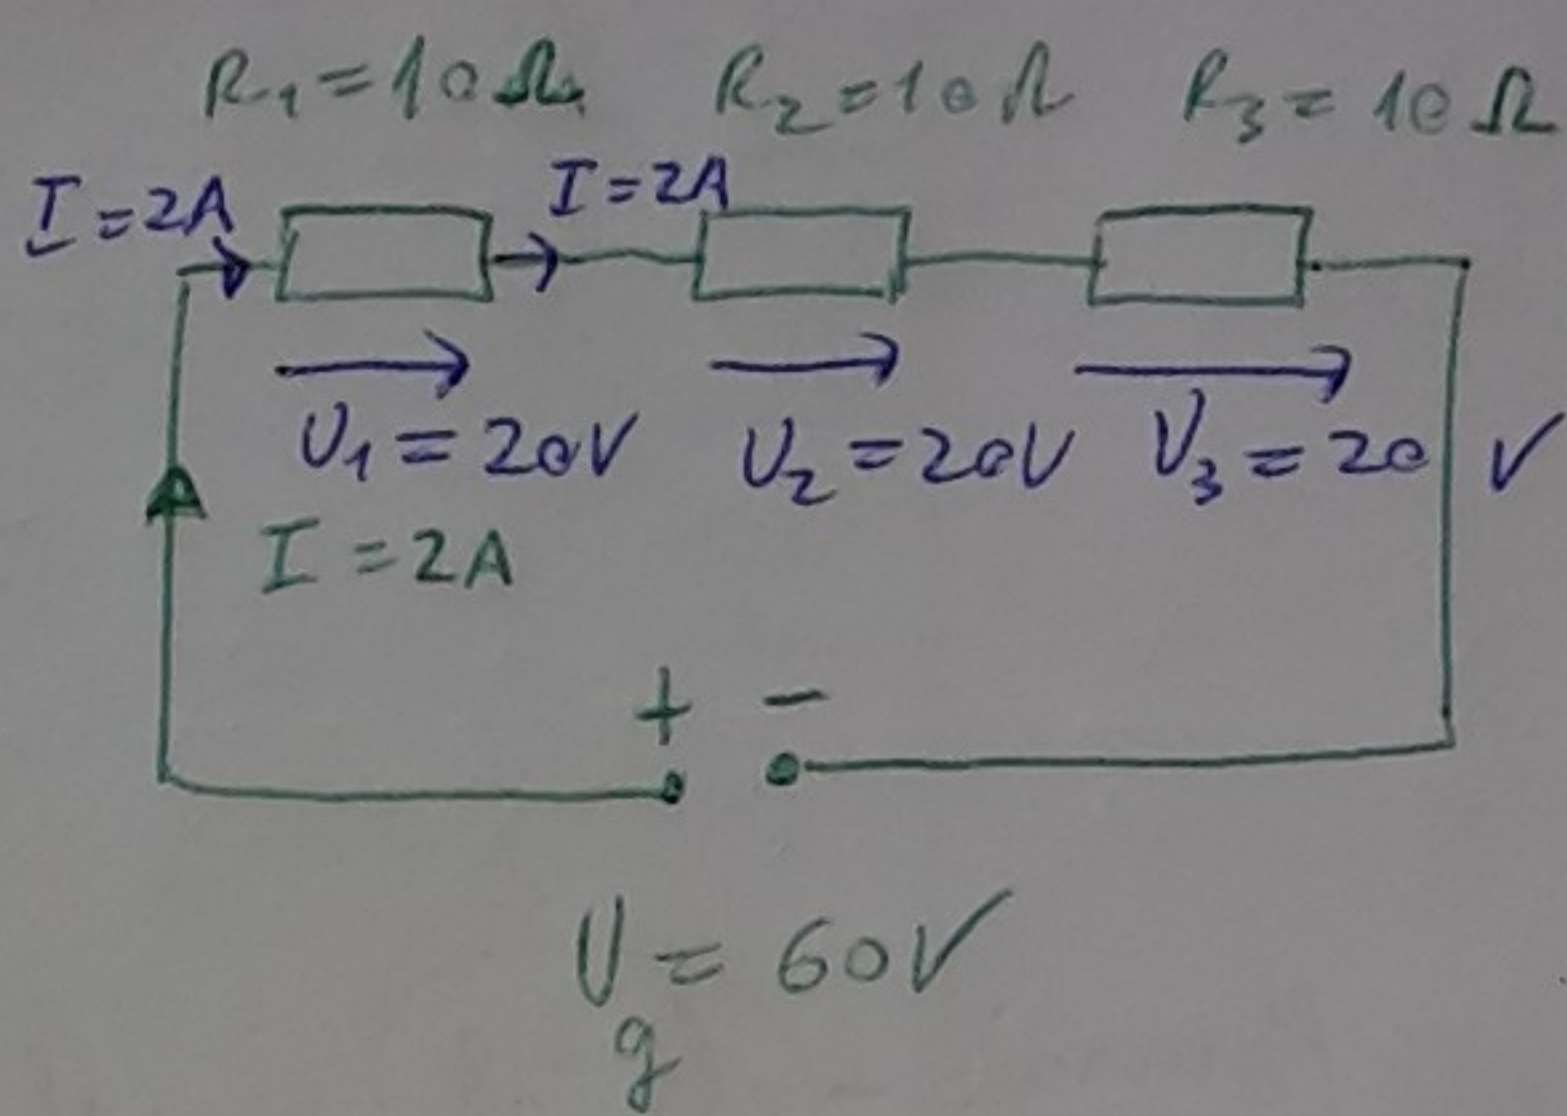 R₁ = 10 Ω R₂ = 10 Ω R₃ = 10 Ω
I = 2A I = 2A
U₁ = 20V U₂ = 20V U₃ = 20 V
I = 2A
+ −
U_g = 60V